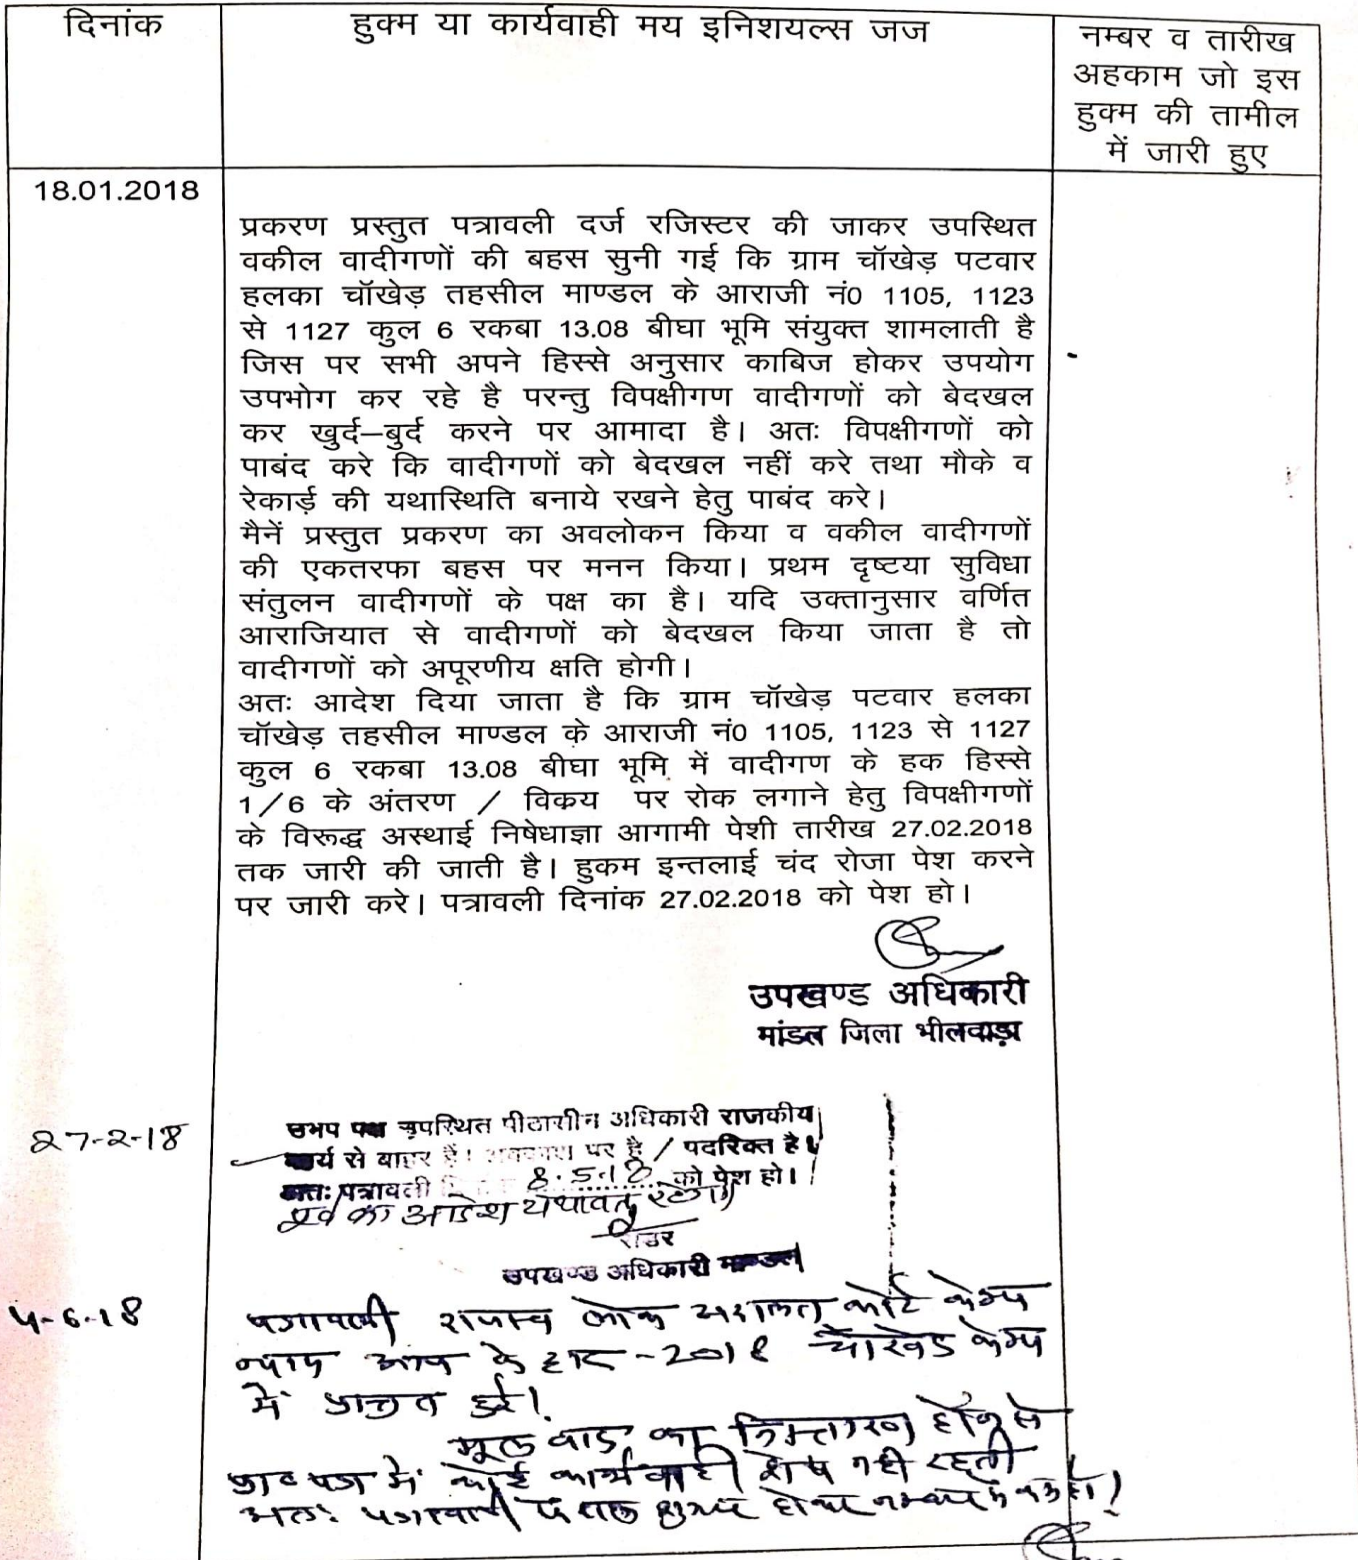 दिनांक
हुक्म या कार्यवाही मय इनिशयल्स जज
नम्बर व तारीख
अहकाम जो इस
हुक्म की तामील
में जारी हुए
18.01.2018
प्रकरण प्रस्तुत पत्रावली दर्ज रजिस्टर की जाकर उपस्थित
वकील वादीगणों की बहस सुनी गई कि ग्राम चॉखेड़ पटवार
हलका चॉखेड़ तहसील माण्डल के आराजी नं0 1105, 1123
से 1127 कुल 6 रकबा 13.08 बीघा भूमि संयुक्त शामलाती है
जिस पर सभी अपने हिस्से अनुसार काबिज होकर उपयोग
उपभोग कर रहे है परन्तु विपक्षीगण वादीगणों को बेदखल
कर खुर्द–बुर्द करने पर आमादा है। अतः विपक्षीगणों को
पाबंद करे कि वादीगणों को बेदखल नहीं करे तथा मौके व
रेकार्ड़ की यथास्थिति बनाये रखने हेतु पाबंद करे।
मैनें प्रस्तुत प्रकरण का अवलोकन किया व वकील वादीगणों
की एकतरफा बहस पर मनन किया। प्रथम दृष्टया सुविधा
संतुलन वादीगणों के पक्ष का है। यदि उक्तानुसार वर्णित
आराजियात से वादीगणों को बेदखल किया जाता है तो
वादीगणों को अपूरणीय क्षति होगी।
अतः आदेश दिया जाता है कि ग्राम चॉखेड़ पटवार हलका
चॉखेड़ तहसील माण्डल के आराजी नं0 1105, 1123 से 1127
कुल 6 रकबा 13.08 बीघा भूमि में वादीगण के हक हिस्से
1/6 के अंतरण / विकय पर रोक लगाने हेतु विपक्षीगणों
के विरूद्ध अस्थाई निषेधाज्ञा आगामी पेशी तारीख 27.02.2018
तक जारी की जाती है। हुकम इन्तलाई चंद रोजा पेश करने
पर जारी करे। पत्रावली दिनांक 27.02.2018 को पेश हो।
उपखण्ड अधिकारी
मांडल जिला भीलवाड़ा
27-2-18
उभय पक्ष उपस्थित पीठासीन अधिकारी राजकीय
कार्य से बाहर है। अवकाश पर है / पदरिक्त है।
अतः पत्रावली 8.5.18 को पेश हो।
पूर्व का आदेश यथावत् रहेगा
रीडर
उपखण्ड अधिकारी माण्डल
4-6-18
पत्रावली राजस्व लोक अदालत कोर्ट केम्प
न्याय आपके द्वार-2018 चॉखेड केम्प
में प्राप्त हुई।
मूल वाद का निस्तारण होने से
में कोई कार्यवाही शेष नहीं रहती
अतः पत्रावली फैसल शुमार होकर नम्बर से कम हो।